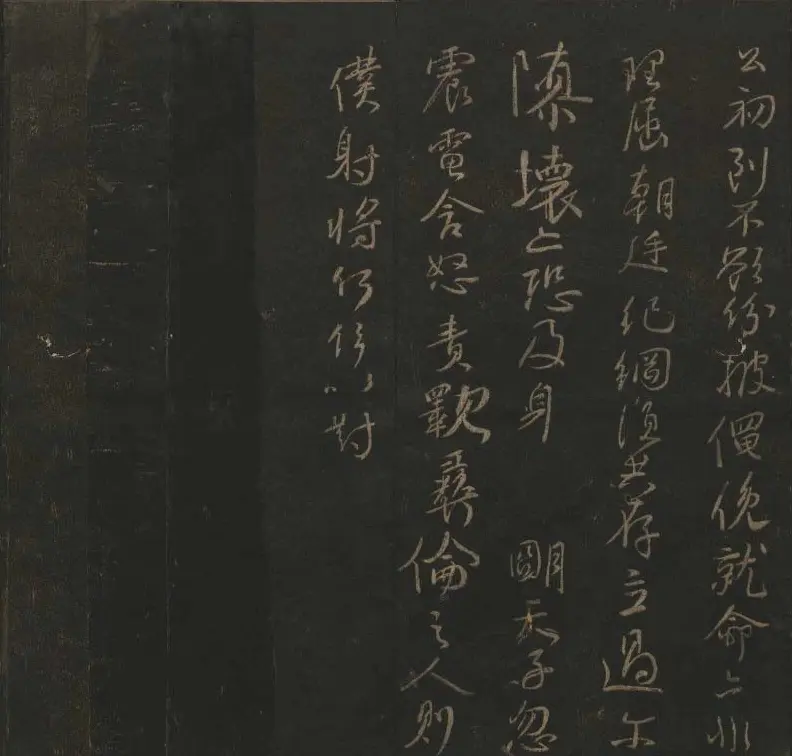 公初到不欲紛披僶俛就命亦非
理屈朝廷紀綱須共存立過尔
隳壞亦恐及身 明天子忽
震電含怒責斁彝倫之人則
僕射將何辞以對